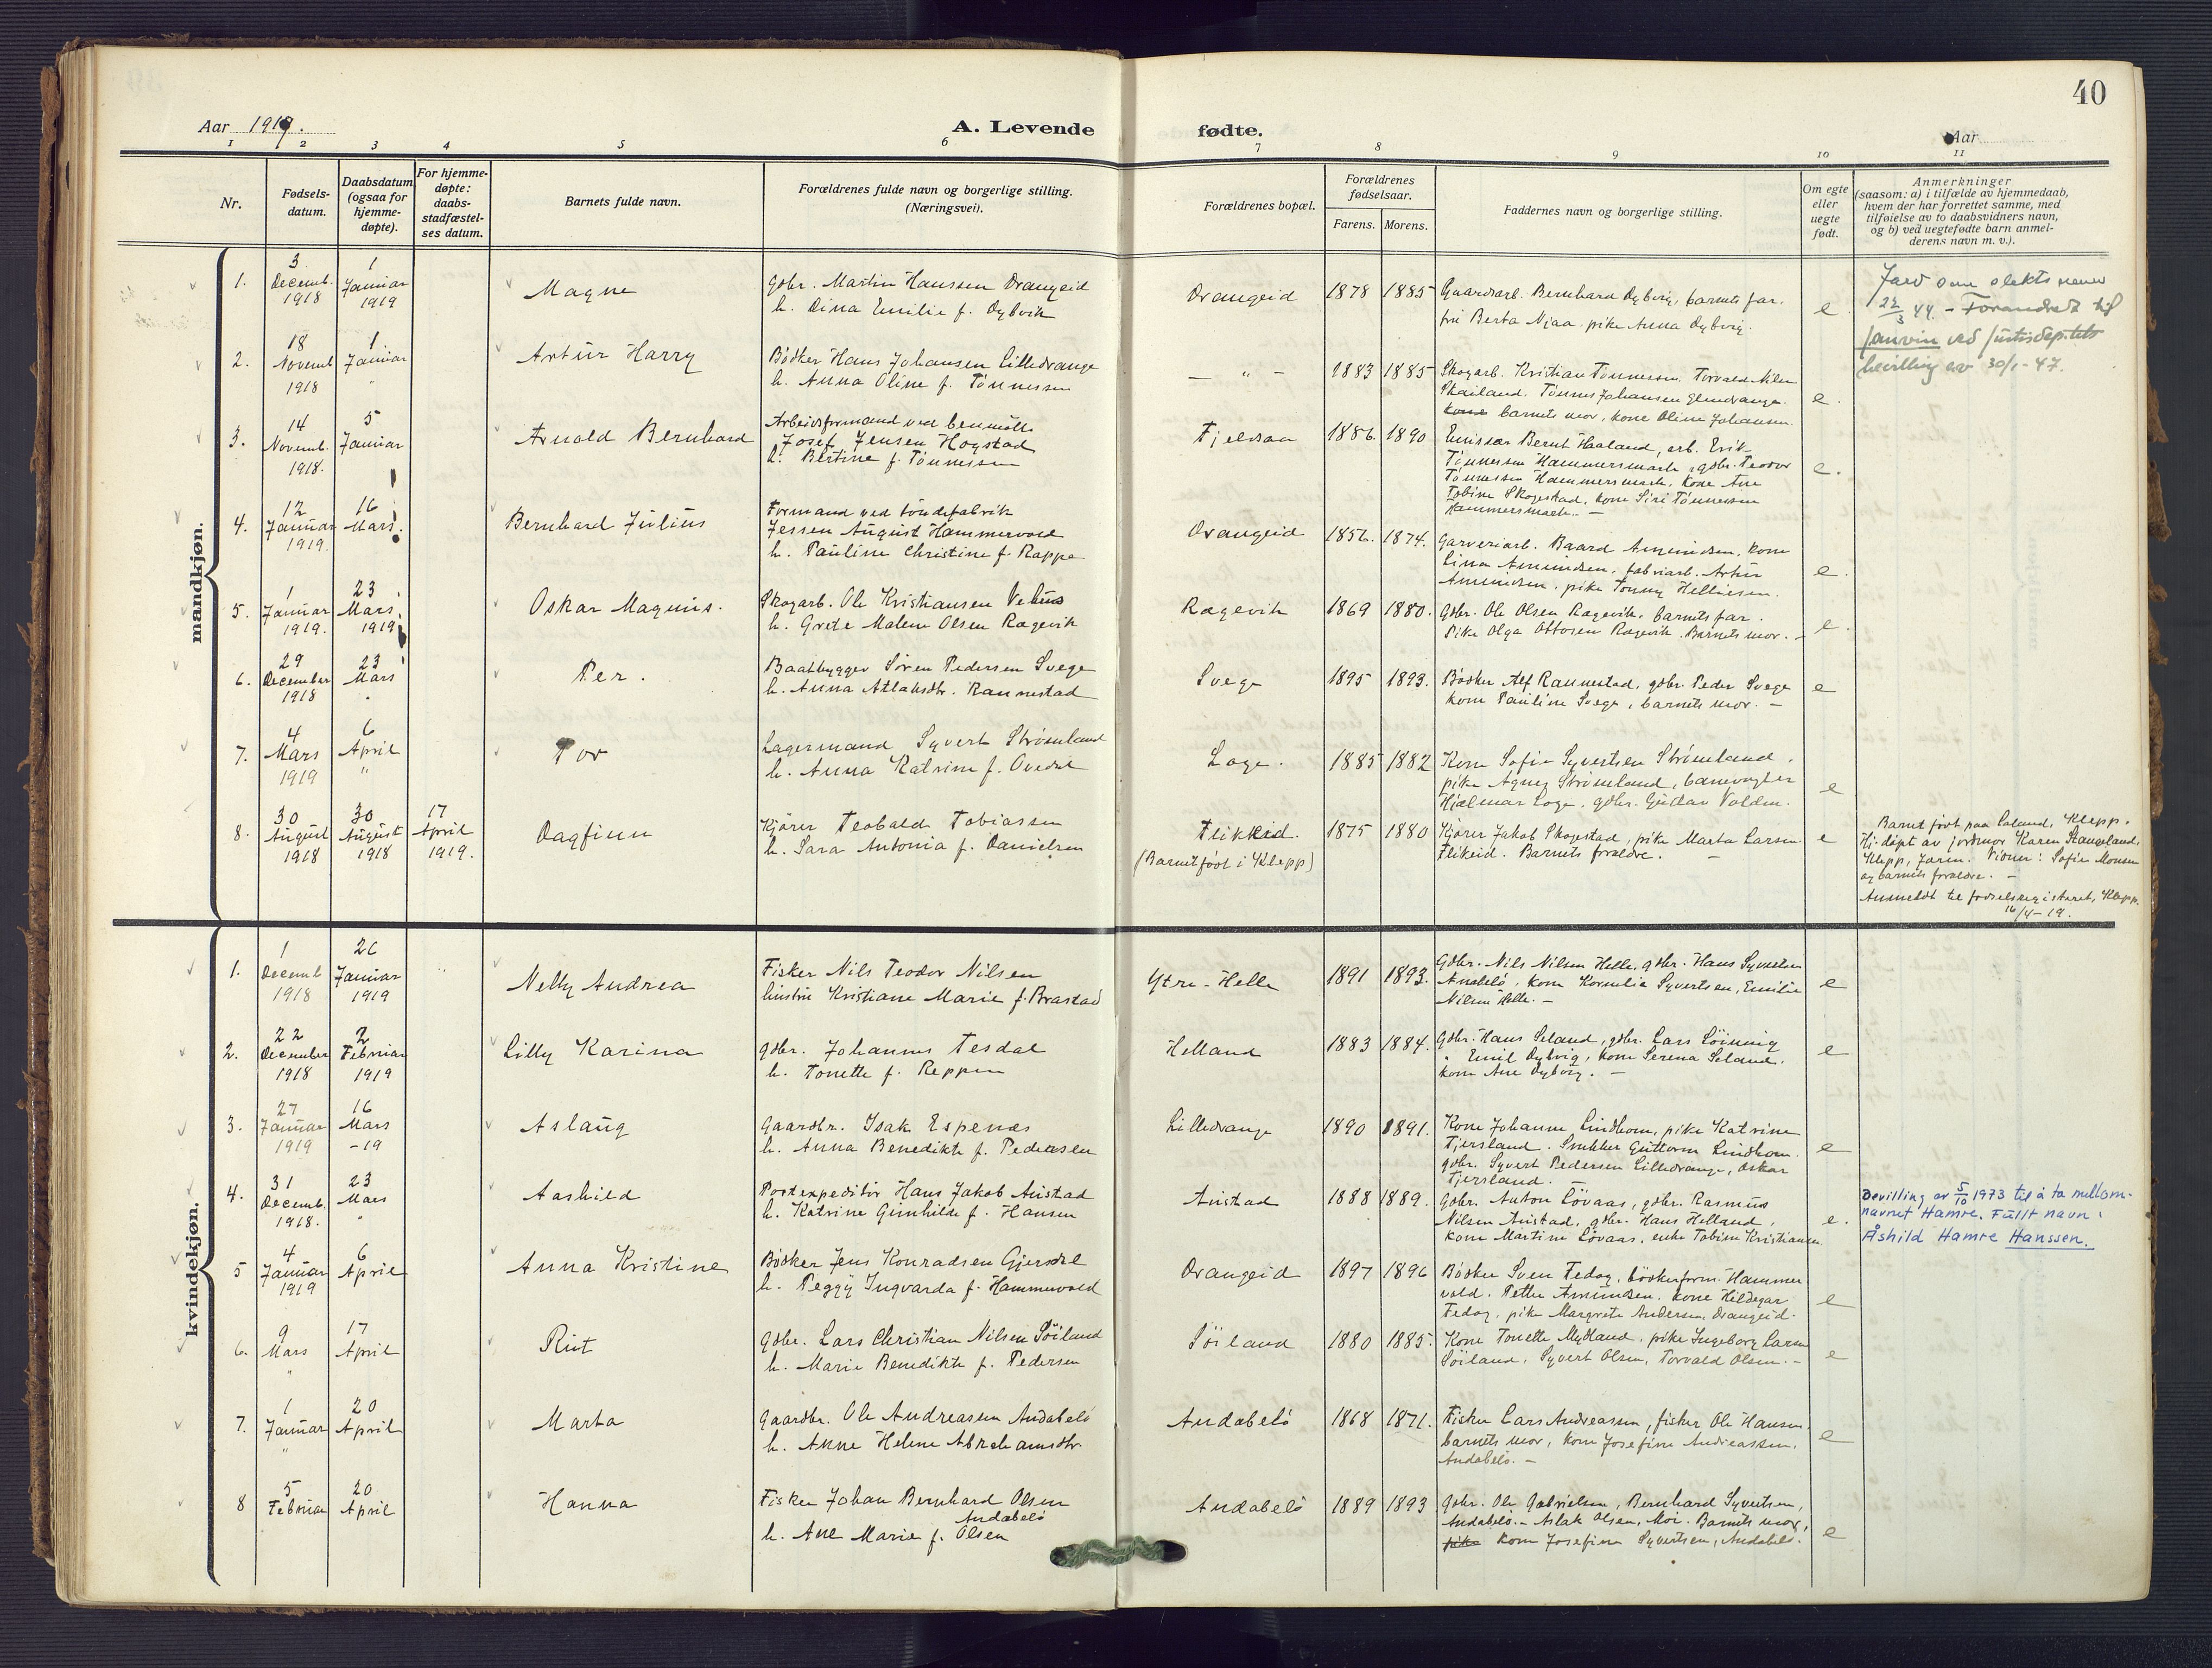 40
Aar 1919.
A. Levende fødte.
Aar
1 2 3 4 5 6 7 8 9 10 11
Nr.
Fødsels-
datum.
Daabsdatum
(ogsaa for
hjemme-
døpte).
For hjemme-
døpte:
daabs-
stadfæstel-
ses datum.
Barnets fulde navn.
Forældrenes fulde navn og borgerlige stilling.
(Næringsvei).
Forældrenes bopæl.
Forældrenes
fødselsaar.
Farens. Morens.
Faddernes navn og borgerlige stilling.
Om egte
eller
uegte
født.
Anmerkninger
(saasom: a) i tilfælde av hjemmedaab,
hvem der har forrettet samme, med
tilføielse av to daabsvidners navn,
og b) ved uegtefødte barn anmel-
derens navn m. v.).
mandkjøn.
1.
3
Decemb.
1918
1
Januar
1919
Magne
gdbr. Martin Hanssen Drangeid
h. Dina Emilie f. Dybvik
Drangeid
1878 1885
Gaardarb. Bernhard Dybvig, barnets far.
fru Berta Njaa. pike Anna Dybvig.
e
som slektsnavn
22/3 44. - Forandret til
ved justisdep.tets
bevilling av 30/1-47.
2.
18
Novemb
1918
1
Januar
"
Artur Harry
Bødker Hans Johansen Lilledrange
h. Anna Oline f. Tønnessen
- " -
1883 1885
Skogarb. Kristian Tønnessen, Torvald Nilsen
Skailand. Tønnes Johansen
kone barnets mor, kone Oline Johansen.
e.
3.
14
Novemb.
1918.
5
Januar
Arnold Bernhard
Arbeidsformand ved benmølle
Josef Jensen Hogstad
h. Bertine f. Tønnessen
Fjeldsaa
1886. 1890
Emissær Bernt Haaland, arb. Erik
Tønnessen Hammersmark, gdbr. Teodor
Tønnessen Hammersmark, kone Ane
Tobine Skogestad, kone Siri Tønnessen
Hammersmark. -
e.
4.
12
Januar
1919.
16
Mars.
Bernhard Julius
Formand ved tøndefabrik
Jessen August Hammervold
h. Pauline Christine f. Rappe
Drangeid
1856. 1874.
Garveriarb. Baard Amundsen, kone
Lina Amundsen, fabriarb. Artur
Amundsen, pike Tonny Helliesen.
e.
5.
1
Januar
1919.
23
Mars.
1919
Oskar Magnus.
Skogarb. Ole Kristiansen
h. Grete Malene Olsen Rægevik
Rægevik
1869 1880.
gdbr. Ole Olsen Rægevik, barnets far.
Pike Olga Ottosen Rægevik. Barnets mor. -
e.
6.
29
December
1918
23
Mars
"
Per.
Baatbygger Søren Pedersen Svege
h. Anna Atlaksdtr. Rannestad
Svege
1895 1893.
Bødker Alf Rannestad, gdbr. Peder Svege
kone Pauline Svege, barnets mor. -
e
7.
4
Mars
1919
6
April
"
Tor
Lagermand Syvert Strømland
h. Anna Katrine f. Ovedal
Loge.
1885 1882
Kone Sofie Syvertsen Strømland,
pike Agnes Strømland, banevogter
Hjalmar Loge, gdbr. Gustav Volden.
e
8.
30
August
1918
30
August
1918
17
April
1919.
Dagfinn
Kjører Teobald Tobiassen
h. Sara Antonia f. Danielsen
Flikkeid.
(Barnet født i Klepp)
1875 1880
Kjører Jakob Skogestad, pike Marta Larsen.
Flikeid. Barnets forældre. -
e
Barnet født paa Laland, Klepp.
Hj. døpt av jordmor Karen Stangeland,
Klepp, Jæren. Vidner: Sofie Monsen
og barnets forældre. -
Anmeldt til fødselsregisteret, Klepp.
16/4-19.
kvindekjøn.
1.
1
Decemb
1918
26
Januar
1919
Nelly Andrea
Fisker Nils Teodor Nilsen
hustru Kristiane Marie f. Brastad
Ytre-Helle
1891 1893.
Gdbr. Nils Nilsen Helle, gdbr. Hans Syvertsen
Anabelø, kone Kornelia Syvertsen, Emilie
Nilsen Helle. -
e
2.
22
December
1918
2
Februar
1919
Lilly Karina
gdbr. Johannes Tesdal
h. Tonette f. Reppen
Helland
1883 1884.
Gdbr. Hans Seland, gdbr. Lars Løining
" Emil Dybvig, kone Serena Seland.
kone Ane Dybvig. -
e
3.
27
Januar
1919
16
Mars
-19
Aslaug
Gaardbr. Isak Espenæs
h. Anna Benedikte f. Pedersen
Lilledrange
1890 1891.
Kone Johanne Lindhom, pike Katrine
Fjersland. Snekker Guttorm Lindhom.
gdbr. Syvert Pedersen Lilledrange, Oskar
Fjersland. -
e
4.
31
Decemb.
1918.
23
Mars
"
Aashild
Postexpeditør Hans Jakob Austad
h. Katrine Gunhilde f. Hansen
Austad
1888 1889.
gdbr. Anton Løvaas, gdbr. Rasmus
Nilsen Austad, gdbr. Hans Helland,
kone Martine Løvaas, enke Tobine Kristiansen
e.
Bevilling av 5/10 1973 til å ta mellom-
navnet Hamre. Fullt navn:
Åshild Hamre Hanssen.
5
4
Januar
1919
6
April
Anna Kristine
Bødker Jens Konradsen Gjersdal
h. Peggy Ingvarda f. Hammervold
Drangeid
1897 1896
Bødker Sven Fedog, bødkerform. Hammer
vold. Petter Amundsen. kone Hildegar
Fedog, pike Margrete Andersen, Drangeid.
e
6.
9
Mars
"
17
April
Rut
gdbr. Lars Christian Nilsen Søiland
h. Marie Benedikte f. Pedersen
Søiland
1880 1885.
Kone Tonette Mydland, pike Ingeborg Larsen
Søiland, Syvert Olsen, Torvald Olsen. -
e
7.
1
Januar
"
20
April
Marta
Gaardbr. Ole Andreassen Andabelø
h. Anne Helene Abrahamsdtr.
Andabelø
1868 1871.
Fisker Lars Andreassen, fisker Ole Hansen.
barnets mor, kone Josefine Andreassen,
Andabelø. -
e
8
5
Februar
20
April
Hanna
Fisker Johan Bernhard Olsen
Andabelø
h. Ane Marie f. Olsen
Andabelø
1889 1893
Gdbr. Ole Gabrielsen, Bernhard Syvertsen,
Andabelø. - Aslak Olsen, Moi. Barnets mor,
pike kone Josefine Syvertsen, Andabelø.
e